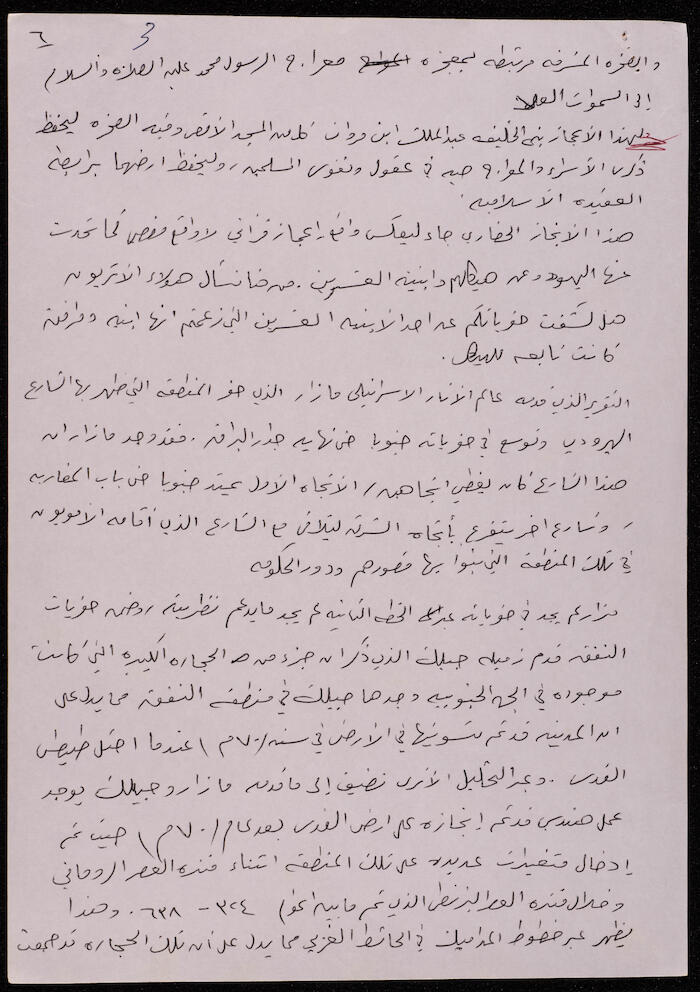 ٦
3
والصخره المشرفه مرتبطه بمعجزه معراج الرسول محمد عليه الصلاة والسلام
إلى السموات العلا
ولهذا الأعجاز بنى الخليفه عبد الملك ابن مروان كل من المسجد الأقصى وقبة الصخره ليحفظ
ذكرى الأسراء والمعراج حيه في عقول ونفوس المسلمين، وليحفظ ارضهما برابطة
العقيده الأسلاميه.
هذا الانجاز الحضاري جاء ليعكس واقع إعجاز قرآني لا واقع قصصي كما تحدثت
عنها اليهود عن هيكلهم وابنية القسرين. من هنا نسأل هولاء الأثريون
هل كشفت حفرياتكم عن احد الابنيه القسرين التي زعمتم انها ابنيه ومرافق
كانت تابعه للهيكل.
التقرير الذي قدمه عالم الأثار الاسرائيلي مازار الذي حفر المنطقه التي ظهر بها الشارع
الهيرودي وتوسع في حفرياته جنوبا حتى نهاية جدار البراق. فقد وجد مازار ان
هذا الشارع كان يغطي اتجاهين، الأتجاه الأول يمتد جنوبا حتى باب المغاربه
، وشارع اخر يتفرع بأتجاه الشرق ليتلاقى مع الشارع الذي أقامه الأمويون
في تلك المنطقة التي بنوا بها قصورهم ودور الحكومه
مزار لم يجد في حفرياته عبر الخطه الثانيه لم يجد ما يدعم نظريته، وضمن حفريات
النفق قدم زميله جبلك الذي ذكر ان جزء من هذه الحجاره الكبيره التي كانت
موجوده في الجهه الجنوبيه وجدها جبلك في منطقة النفق مما يدل على
ان المدينه قد تم تسويتها في الأرض في سنة (٧٠م) عندما احتل طيطس
القدس. وعبر التحليل الأثري نضيف إلى ما قدمه مازار وجبلك يوجد
عمل هندسي قد تم إنجازه على ارض القدس بعد عام (٧٠م) حيث تم
إدخال متغيرات عديده على تلك المنطقه اثناء فتره العصر الروماني
وخلال فتره العصر البزنطي الذي تم ما بين اعوام ٣٢٤ - ٦٣٨. وهذا
يظهر عبر خطوط المداميك في الحائط الغربي مما يدل على أن تلك الحجاره قد صمعت